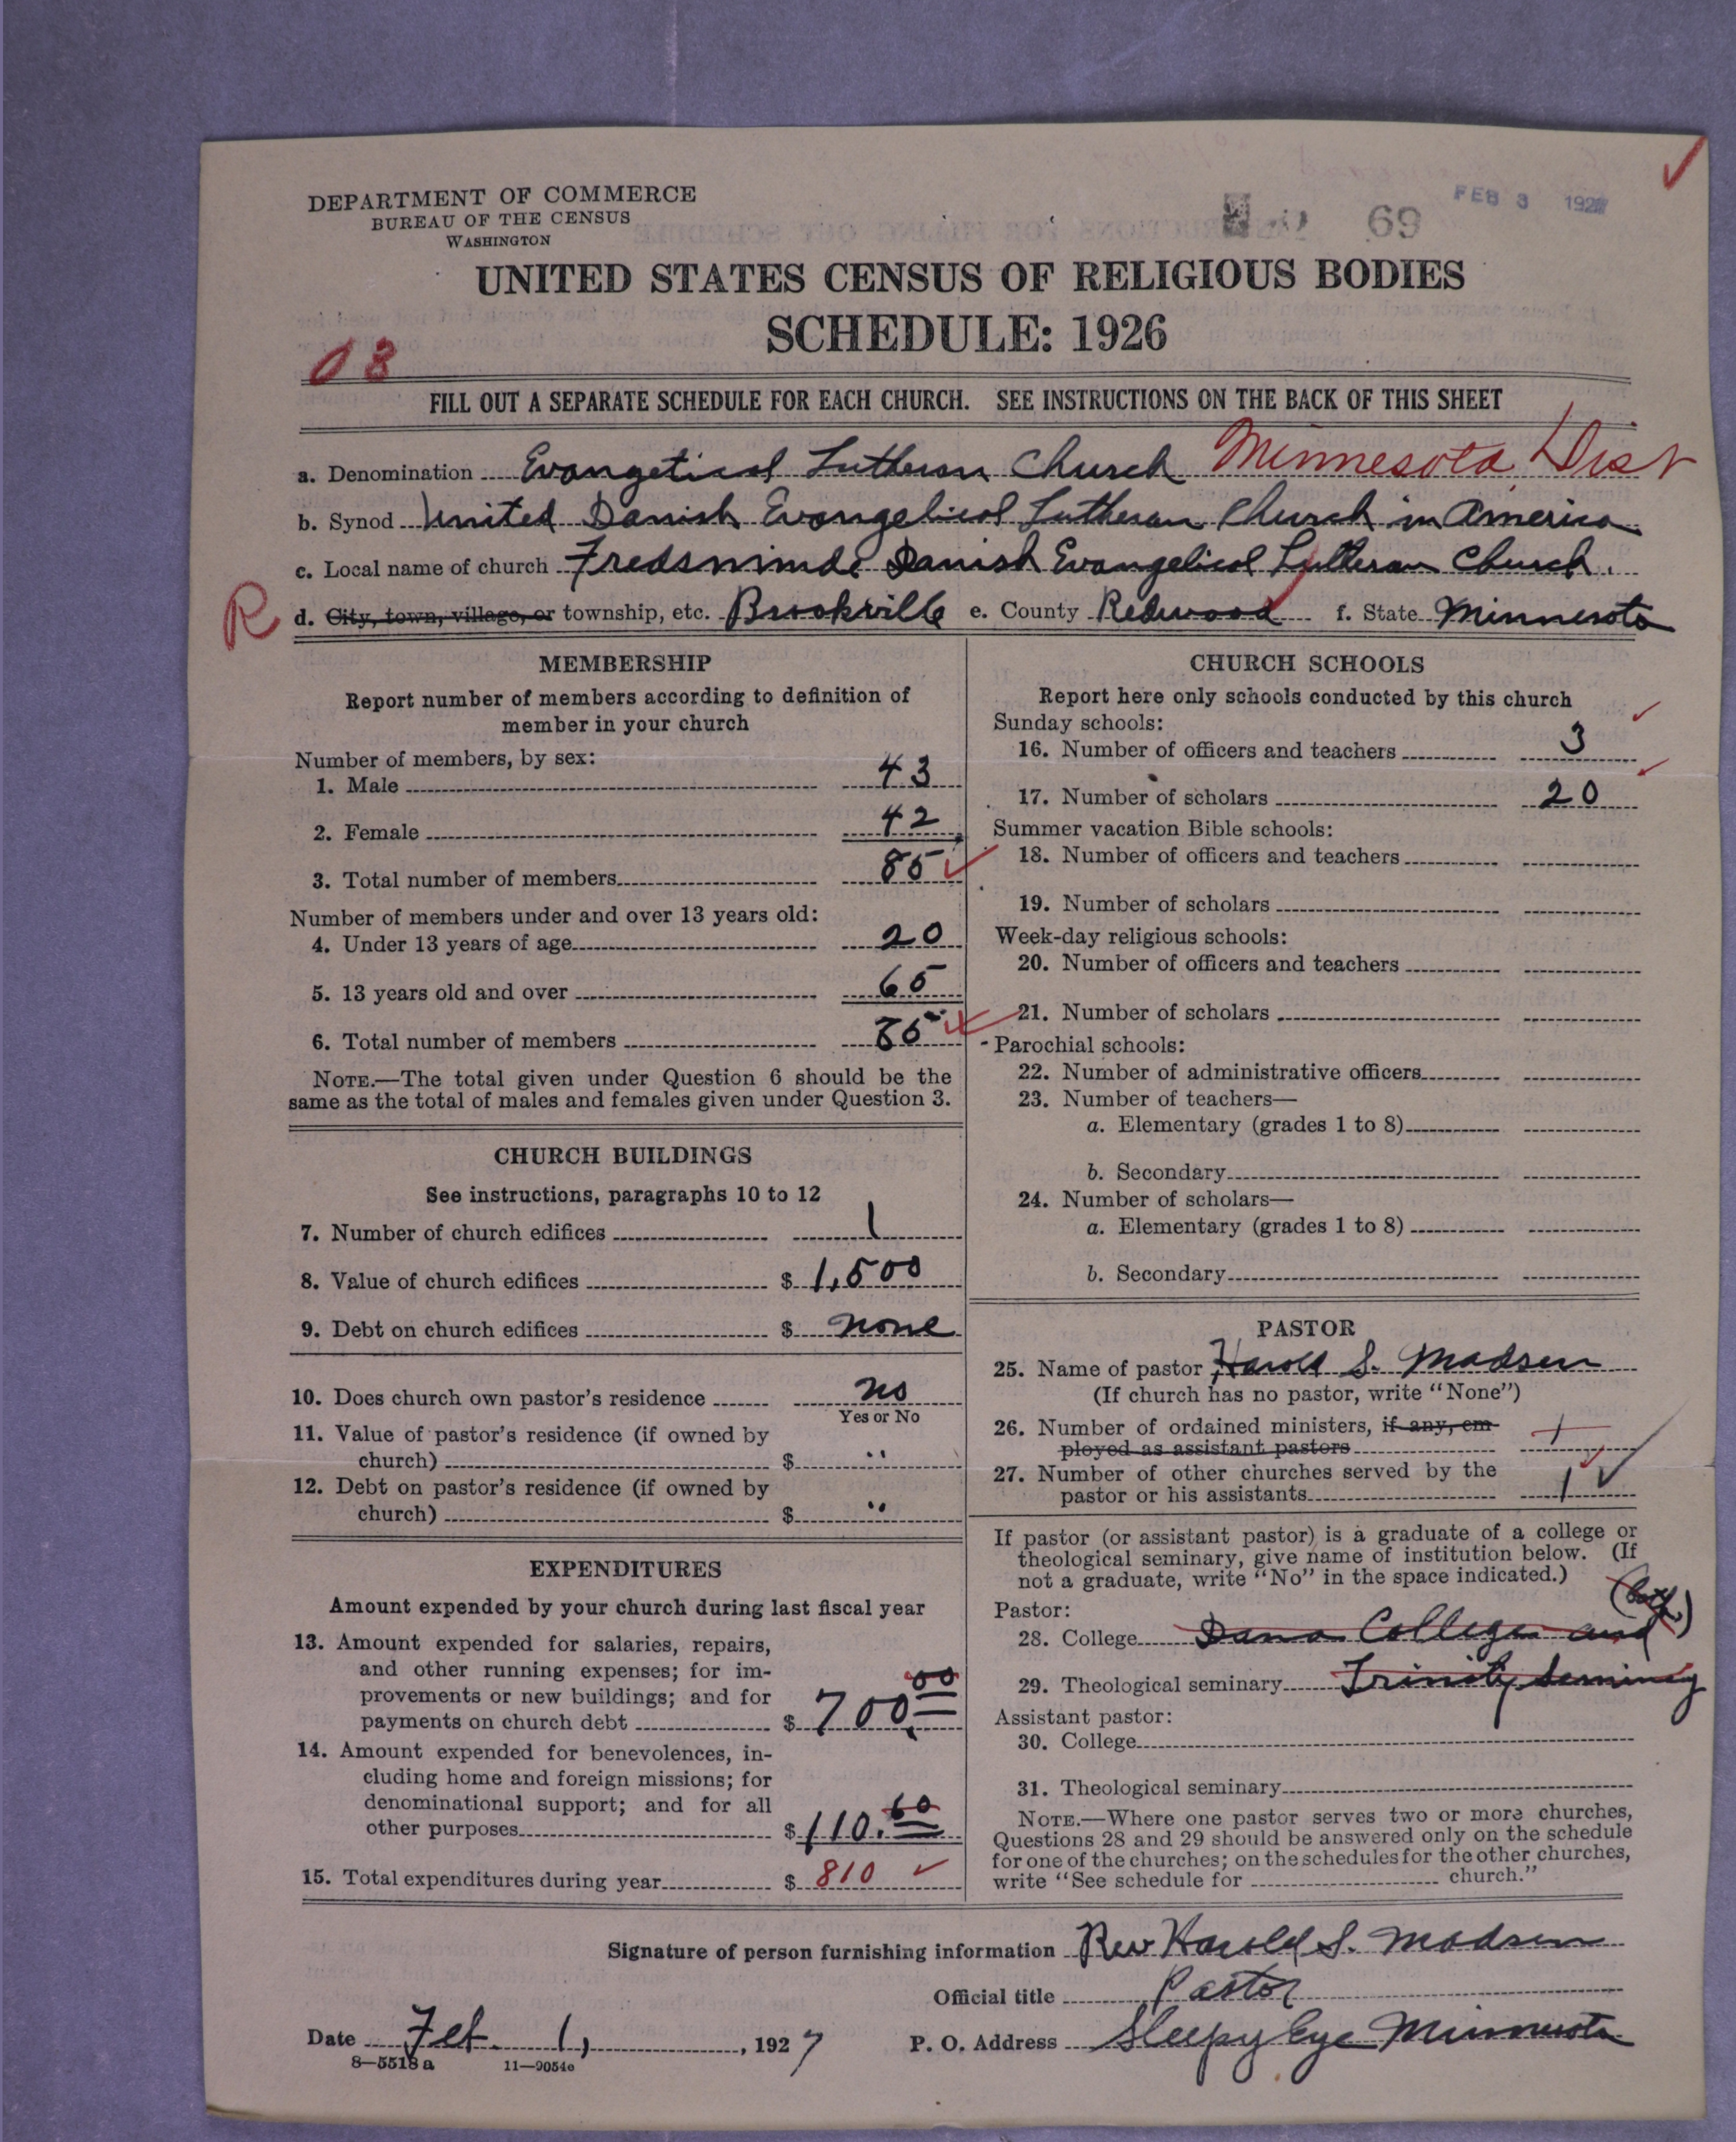 DEPARTMENT OF COMMERCE
BUREAU OF THE CENSUS
WASHINGTON
69
FEB 3 1927
UNITED STATES CENSUS OF RELIGIOUS BODIES
SCHEDULE: 1926
03
FILL OUT A SEPARATE SCHEDULE FOR EACH CHURCH. SEE INSTRUCTIONS ON THE BACK OF THIS SHEET
a. Denomination Evangetical Lutheran Church Minnesota Dist
b. Synod United Danish Evangelical Lutheran Church in America
c. Local name of church Fredsminde Danish Evangelical Lutheran Church.
R d. City, town, village, or township, etc. Brookville e. County Redwood f. State Minnesota
MEMBERSHIP
Report number of members according to definition of
member in your church
Number of members, by sex:
1. Male 43
2. Female 42
3. Total number of members 85
Number of members under and over 13 years old:
4. Under 13 years of age 20
5. 13 years old and over 65
6. Total number of members 85
NOTE.—The total given under Question 6 should be the
same as the total of males and females given under Question 3.
CHURCH BUILDINGS
See instructions, paragraphs 10 to 12
7. Number of church edifices 1
8. Value of church edifices $ 1,500
9. Debt on church edifices $ none
10. Does church own pastor's residence no
Yes or No
11. Value of pastor's residence (if owned by
church) $ "
12. Debt on pastor's residence (if owned by
church) $ "
EXPENDITURES
Amount expended by your church during last fiscal year
13. Amount expended for salaries, repairs,
and other running expenses; for im-
provements or new buildings; and for
payments on church debt $ 700.00
14. Amount expended for benevolences, in-
cluding home and foreign missions; for
denominational support; and for all
other purposes $ 110.60
15. Total expenditures during year $ 810
CHURCH SCHOOLS
Report here only schools conducted by this church
Sunday schools:
16. Number of officers and teachers 3
17. Number of scholars 20
Summer vacation Bible schools:
18. Number of officers and teachers
19. Number of scholars
Week-day religious schools:
20. Number of officers and teachers
21. Number of scholars
Parochial schools:
22. Number of administrative officers
23. Number of teachers—
a. Elementary (grades 1 to 8)
b. Secondary
24. Number of scholars—
a. Elementary (grades 1 to 8)
b. Secondary
PASTOR
25. Name of pastor Harold S. Madsen
(If church has no pastor, write "None")
26. Number of ordained ministers, if any, em-
ployed as assistant pastors 1
27. Number of other churches served by the
pastor or his assistants 1
If pastor (or assistant pastor) is a graduate of a college or
theological seminary, give name of institution below. (If
not a graduate, write "No" in the space indicated.)
Pastor: (both)
28. College Dana College and
29. Theological seminary Trinity Seminary
Assistant pastor:
30. College
31. Theological seminary
NOTE.—Where one pastor serves two or more churches,
Questions 28 and 29 should be answered only on the schedule
for one of the churches; on the schedules for the other churches,
write "See schedule for church."
Signature of person furnishing information Rev Harold S. Madsen
Official title Pastor
Date Feb. 1, 1927 P. O. Address Sleepy Eye Minnesota
8—5518 a 11—9054e